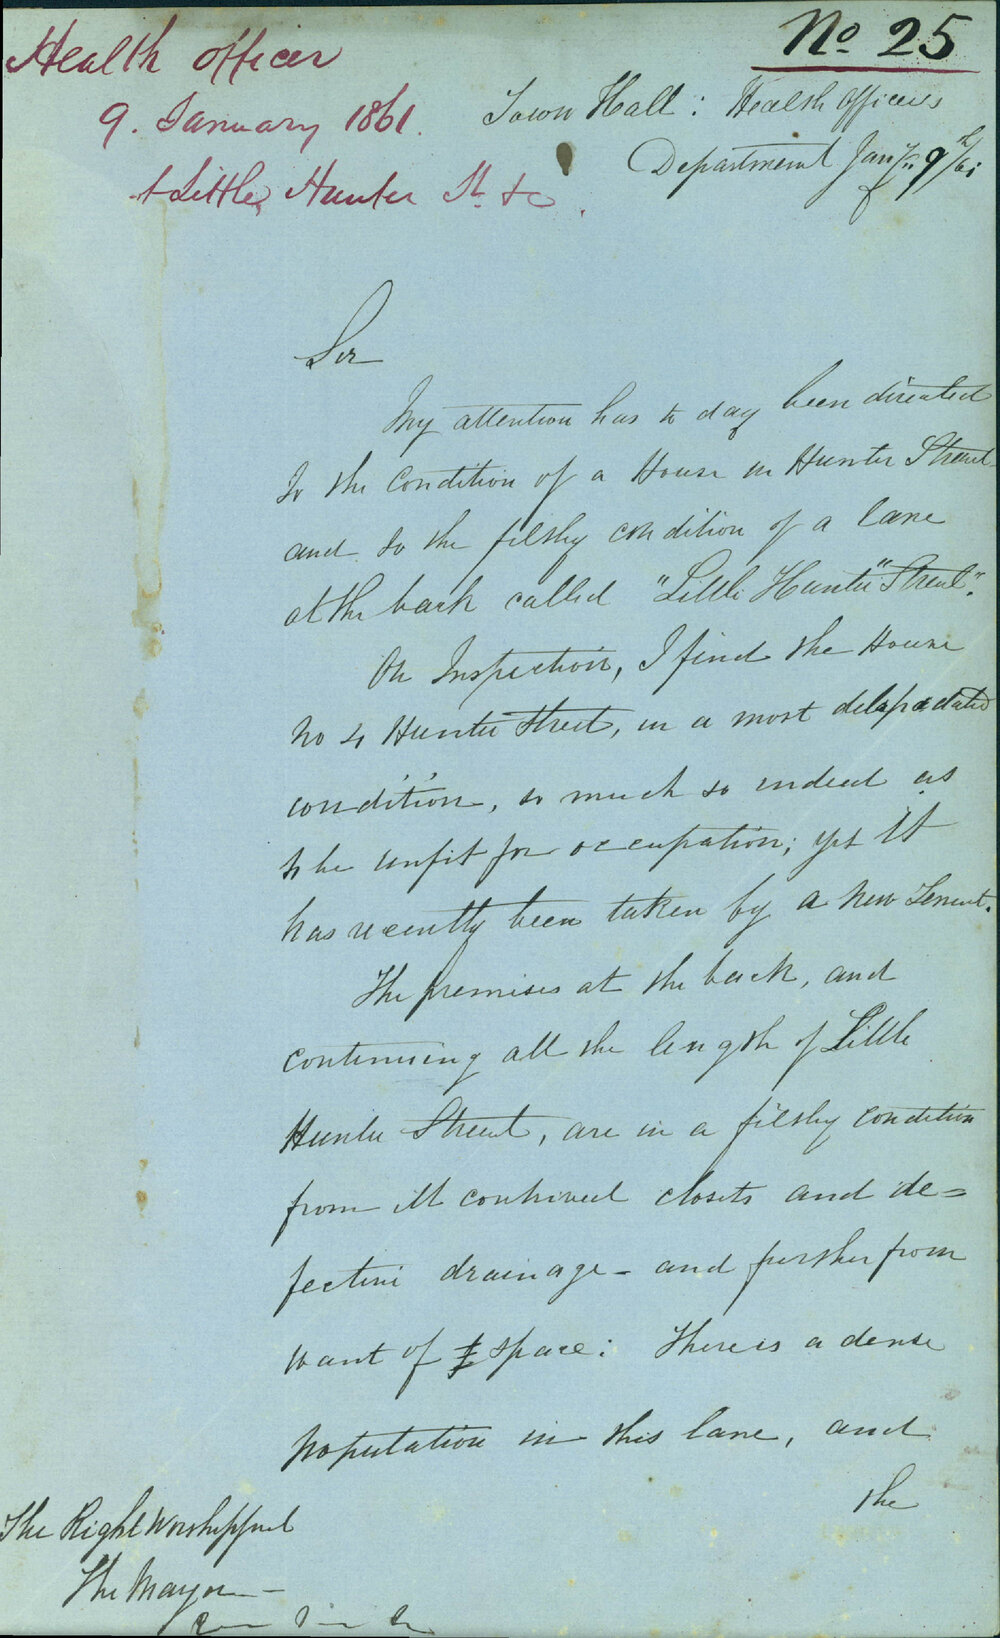 No 25
Health officer
9. January 1861.
Little Hunter St. &c.
Town Hall: Health Officers
Department Jany. 9th/61
Sir
My attention has to day been directed
to the condition of a House in Hunter Street
and to the filthy condition of a lane
at the back called "Little Hunter" Street".
On Inspection, I find the House
No 4 Hunter Street, in a most delapadated
condition, so much so indeed as
to be unfit for occupation; yet it
has recently been taken by a new Tenent.
The premises at the back, and
continuing all the length of Little
Hunter Street, are in a filthy condition
from ill contrived closets and de=
fective drainage - and further from
want of space: There is a dense
population in this lane, and
the
The Right Worshippful
The Mayor